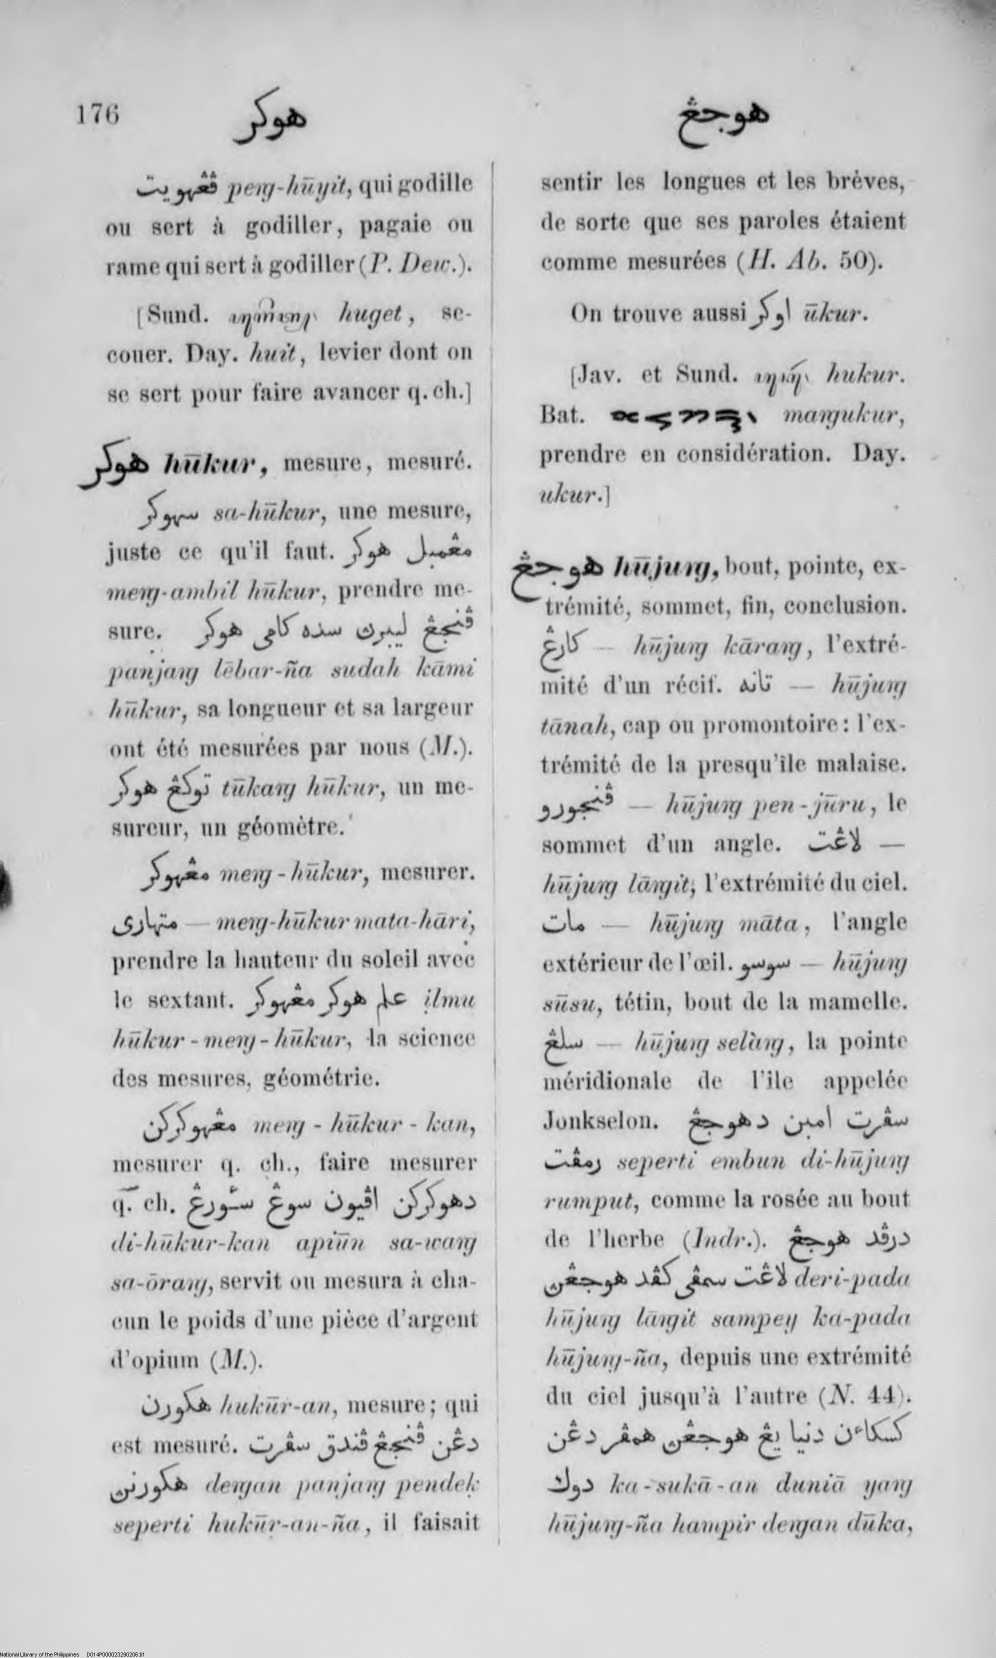 176
هوكر
هوجڠ
ڤڠهويت peng-hūyit, qui godille
ou sert à godiller, pagaie ou
rame qui sert à godiller (P. Dew.).
[Sund. huget, se-
couer. Day. huit, levier dont on
se sert pour faire avancer q. ch.]
هوكر hūkur, mesure, mesuré.
سهوكر sa-hūkur, une mesure,
juste ce qu'il faut. مڠمبل هوكر
meng-ambil hūkur, prendre me-
sure. ڤنجڠ ليبرن سده كامى هوكر
panjang lēbar-ña sudah kāmi
hūkur, sa longueur et sa largeur
ont été mesurées par nous (M.).
توكڠ هوكر tūkang hūkur, un me-
sureur, un géomètre.
مڠهوكر meng-hūkur, mesurer.
متهارى — meng-hūkur mata-hāri,
prendre la hauteur du soleil avec
le sextant. علم هوكر مڠهوكر ilmu
hūkur-meng-hūkur, la science
des mesures, géométrie.
مڠهوكركن meng-hūkur-kan,
mesurer q. ch., faire mesurer
q. ch. دهوكركن اڤيون سوڠ سئورڠ
di-hūkur-kan apiūn sa-wang
sa-ōrang, servit ou mesura à cha-
cun le poids d'une pièce d'argent
d'opium (M.).
هكورن hukūr-an, mesure; qui
est mesuré. دڠن ڤنجڠ ڤندق سڤرت
هكورنن dengan panjang pendek
seperti hukūr-an-ña, il faisait
sentir les longues et les brèves,
de sorte que ses paroles étaient
comme mesurées (H. Ab. 50).
On trouve aussi اوكر ūkur.
[Jav. et Sund. hukur.
Bat. mangukur,
prendre en considération. Day.
ukur.]
هوجڠ hūjung, bout, pointe, ex-
trémité, sommet, fin, conclusion.
كارڠ — hūjung kārang, l'extré-
mité d'un récif. تانه — hūjung
tānah, cap ou promontoire: l'ex-
trémité de la presqu'île malaise.
ڤنجورو — hūjung pen-jūru, le
sommet d'un angle. لاڠت —
hūjung lāngit, l'extrémité du ciel.
مات — hūjung māta, l'angle
extérieur de l'œil. سوسو — hūjung
sūsu, tétin, bout de la mamelle.
سلڠ — hūjung selàng, la pointe
méridionale de l'ile appelée
Jonkselon. سڤرت امبن دهوجڠ
رمڤت seperti embun di-hūjung
rumput, comme la rosée au bout
de l'herbe (Indr.). درڤد هوجڠ
لاڠت سمڤى كڤد هوجڠن deri-pada
hūjung lāngit sampey ka-pada
hūjung-ña, depuis une extrémité
du ciel jusqu'à l'autre (N. 44).
كسكاءن دنيا يڠ هوجڠن همڤر دڠن
دوك ka-sukā-an duniā yang
hūjung-ña hampir dengan dūka,
National Library of the Philippines